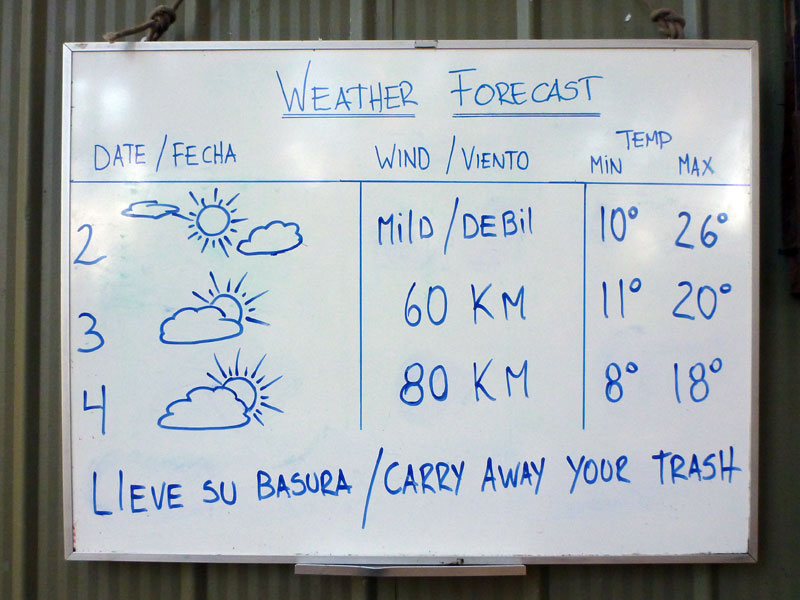 WEATHER FORECAST
DATE / FECHA WIND / VIENTO TEMP MIN MAX
2 MILD / DEBIL 10° 26°
3 60 KM 11° 20°
4 80 KM 8° 18°
LLEVE SU BASURA / CARRY AWAY YOUR TRASH